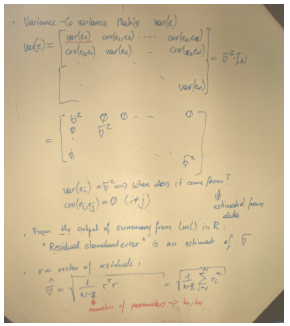 • Variance-Covariance Matrix var(e)
var(e) = [ var(e₁) cov(e₁,e₂) ..... cov(e₁,eₙ)
cov(e₂,e₁) var(e₂) .. cov(e₂,eₙ)
: = σ² I_N
. var(eₙ) ]
= [ σ² 0 0 ... 0
0 σ²
:
0 σ² ]
var(eᵢ) = σ² => Where does it come from?
cov(eᵢ,eⱼ) = 0 (i≠j) estimated from
data
• From the output of summary from lm() in R:
"Residual standard error" is an estimate of σ
• r = vector of residuals:
σ̂ = √( 1/(N-2) rᵀr ) = √( 1/(N-2) Σ rᵢ² )
number of parameters → b₀, b₁